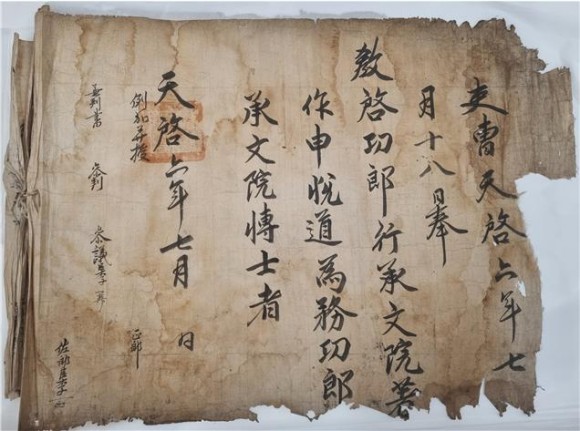 吏曹天啓六年七
月十八日奉
教啓功郎行承文院著
作申悅道爲務功郎
承文院博士者
天啓六年七月 日
判書
參判
參議李
正郎
佐郎